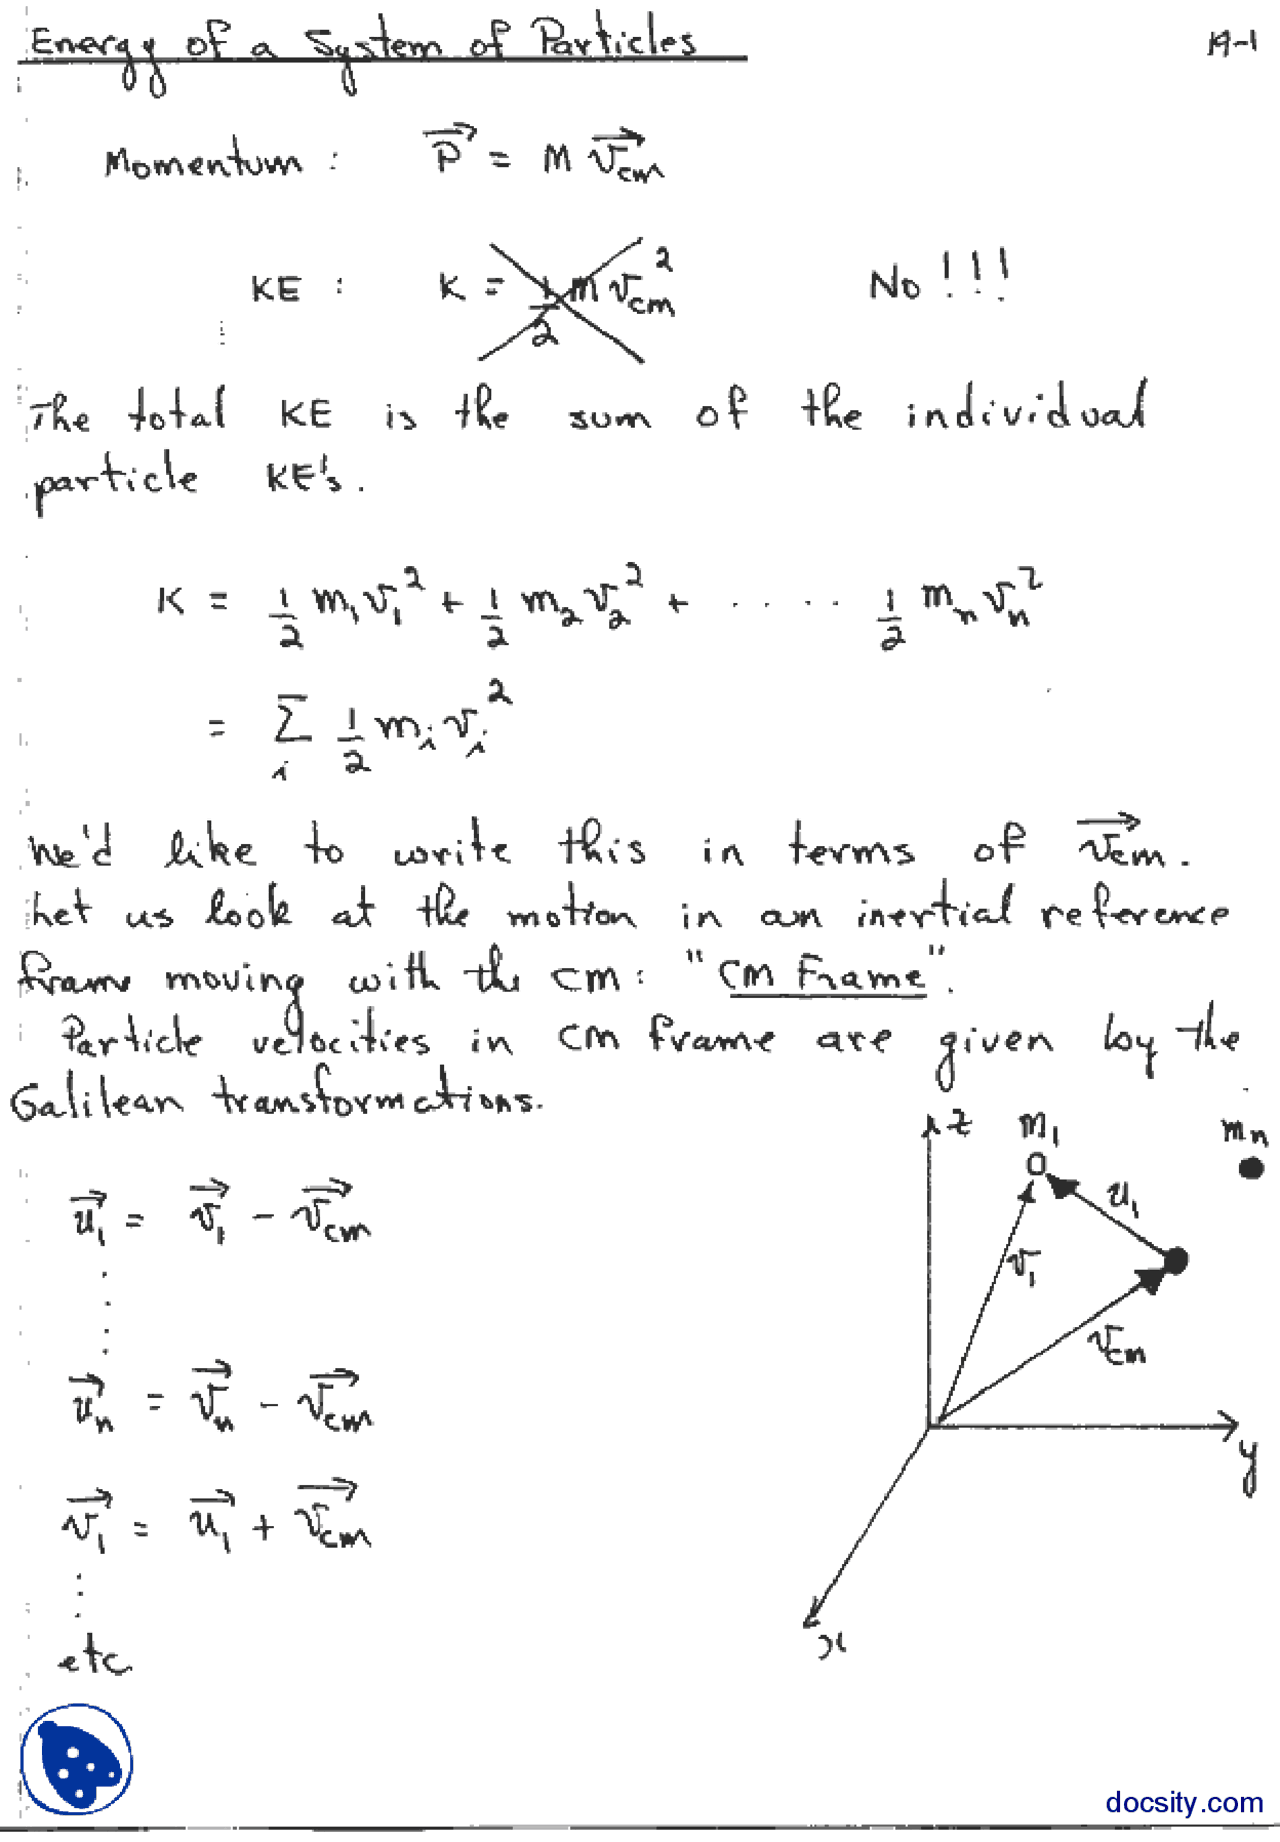 Energy of a System of Particles 19-1
Momentum : P⃗ = M v⃗cm
KE : K = 1/2 m vcm² No!!!
The total KE is the sum of the individual
particle KE's.
K = 1/2 m₁v₁² + 1/2 m₂v₂² + ..... 1/2 mₙvₙ²
= Σᵢ 1/2 mᵢvᵢ²
We'd like to write this in terms of v⃗cm.
Let us look at the motion in an inertial reference
frame moving with the cm: "CM Frame".
Particle velocities in CM frame are given by the
Galilean transformations.
z m₁ mₙ
u⃗₁ = v⃗₁ - v⃗cm
u₁
v₁
vcm
u⃗ₙ = v⃗ₙ - v⃗cm
y
v⃗₁ = u⃗₁ + v⃗cm
x
etc
docsity.com